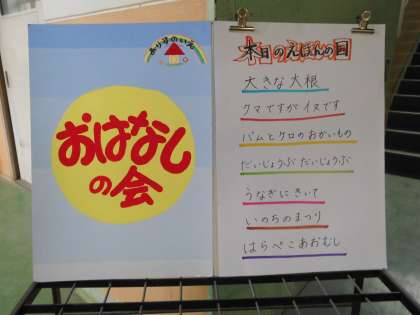 おり子のいえ
おはなし
の会
本日のえほんの国
大きな大根
クマですが イヌです
バムとケロのおかいもの
だいじょうぶ だいじょうぶ
うなぎにきいて
いのちのまつり
はらぺこあおむし